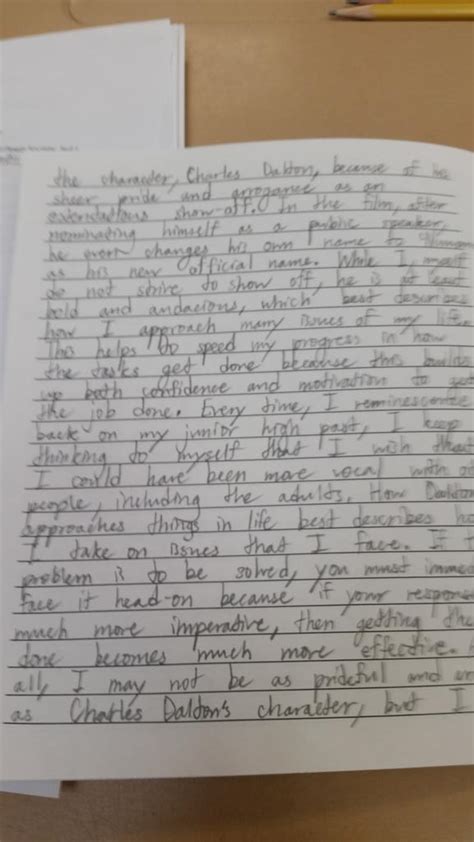 the character, Charles Dalton, because of his
sheer pride and arrogance as an
show-off. In the film, after
nominating himself as a public speaker,
he even changes his own name to
as his new official name. While I, myself
do not strive to show off, he is at least
bold and audacious, which best describes
how I approach many issues of my life.
This helps to speed my progress in how
the tasks get done because this builds
up both confidence and motivation to get
the job done. Every time, I
back on my junior high past, I keep
thinking to myself that I wish that
I could have been more vocal with
people, including the adults. How Dalton
approaches things in life best describes
I take on issues that I face. If
problem is to be solved, you must
face it head-on because if your
much more imperative, then getting
done becomes much more effective.
all, I may not be as prideful and
as Charles Dalton's character, but I